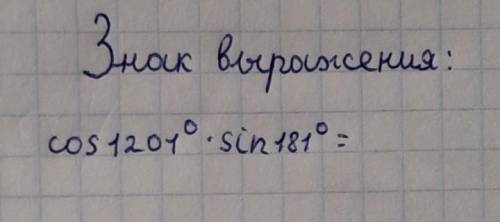 Знак выражения:
cos1201°·sin181°=